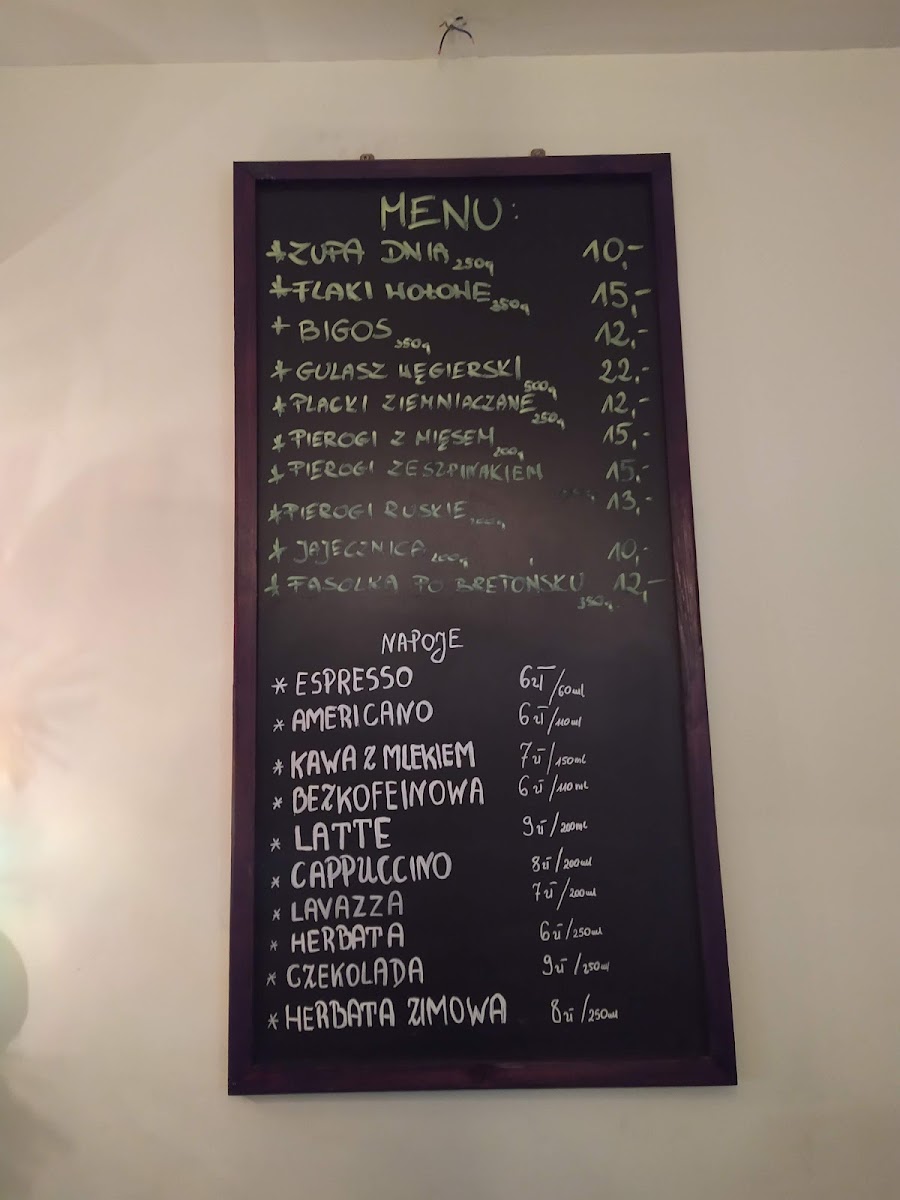 MENU:
* ZUPA DNIA 250g 10,-
* FLAKI WOŁOWE 350g 15,-
* BIGOS 350g 12,-
* GULASZ WĘGIERSKI 500g 22,-
* PLACKI ZIEMNIACZANE 250g 12,-
* PIEROGI Z MIĘSEM 200g 15,-
* PIEROGI ZE SZPINAKIEM 15,-
* PIEROGI RUSKIE 200g 13,-
* JAJECZNICA 200g 10,-
* FASOLKA PO BRETOŃSKU 350g 12,-
NAPOJE
* ESPRESSO 6zł/60ml
* AMERICANO 6zł/110ml
* KAWA Z MLEKIEM 7zł/150ml
* BEZKOFEINOWA 6zł/110ml
* LATTE 9zł/200ml
* CAPPUCCINO 8zł/200ml
* LAVAZZA 7zł/200ml
* HERBATA 6zł/250ml
* CZEKOLADA 9zł/250ml
* HERBATA ZIMOWA 8zł/250ml